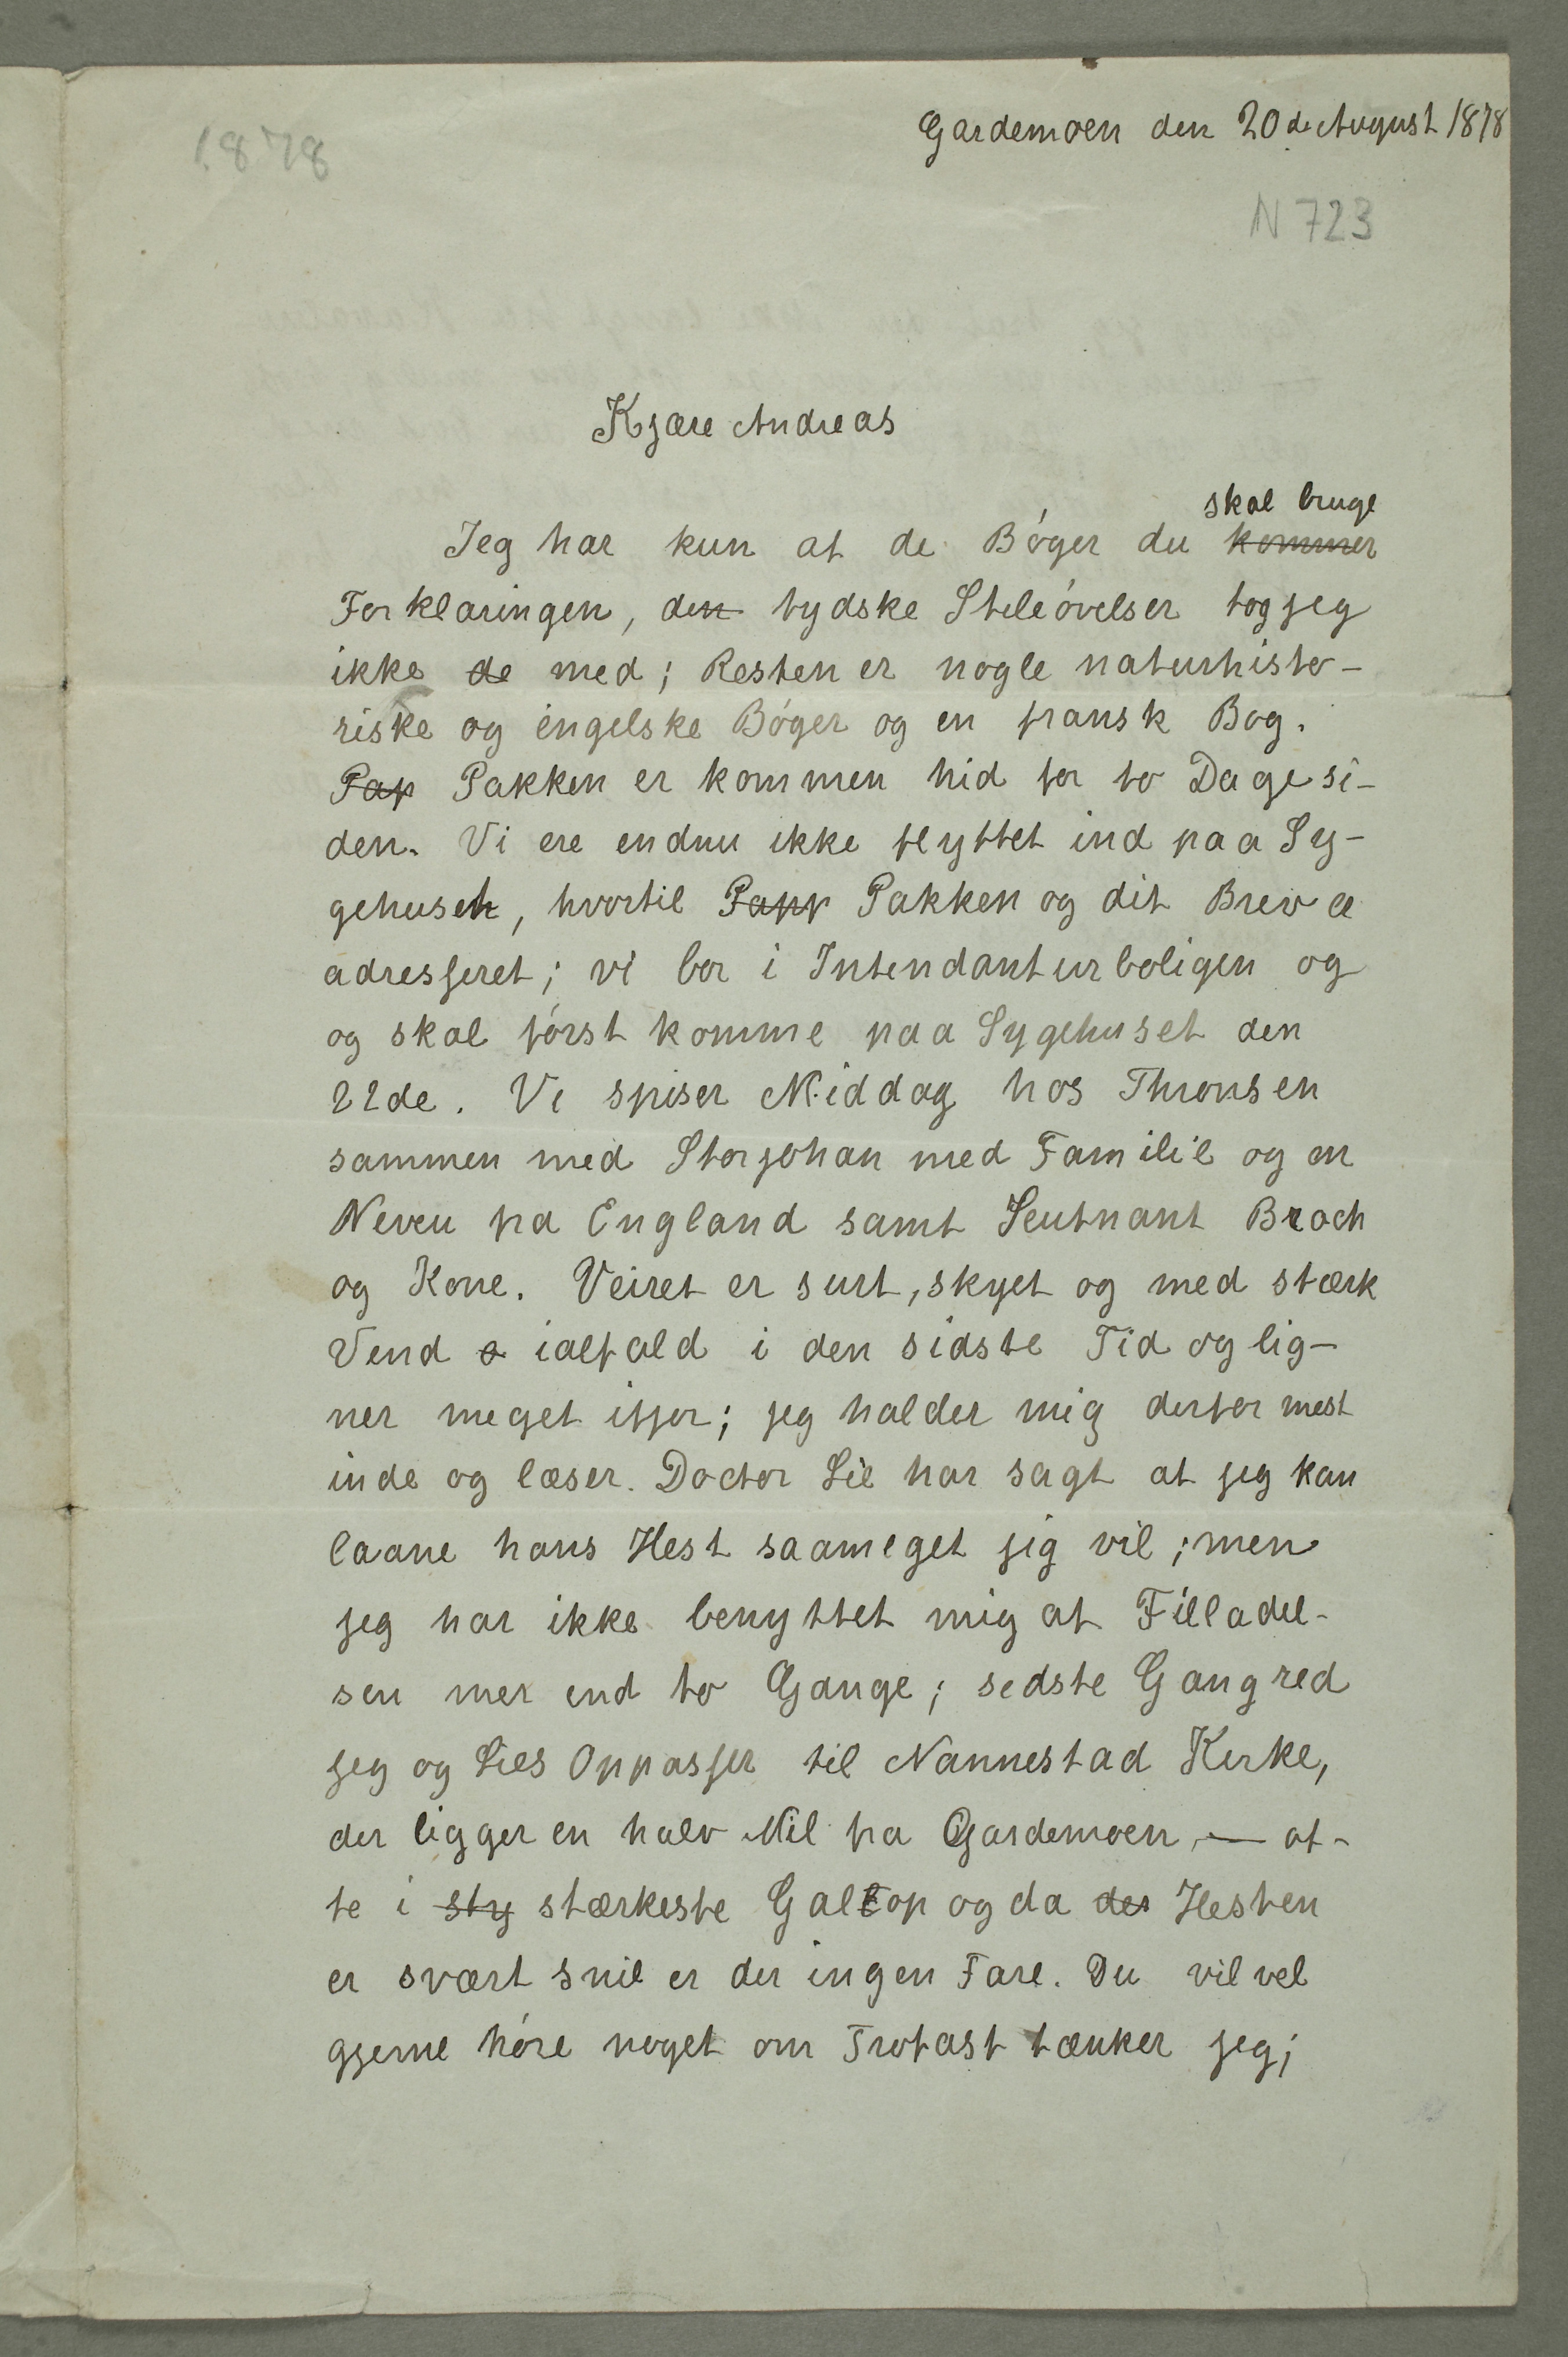 Gardemoen den 20de August 1878
1878
N 723
Kjære Andreas
skal bruge
Jeg har kun af de Bøger du kommer
Forklaringen, den tydske Stiløvelser tog jeg
ikke de med; Resten er nogle naturhisto-
riske og engelske Bøger og en fransk Bog.
Pap Pakken er kommen hid for to Dage si-
den. Vi ere endnu ikke flyttet ind paa Sy-
gehuset, hvortil Papp Pakken og dit Brev er
adresseret; vi bor i Intendanturboligen og
og skal først komme paa Sygehuset den
22de. Vi spiser Middag hos Thronsen
sammen med Storjohan med Familie og en
Neveu fra England samt Leutnant Broch
og Kone. Veiret er surt, skyet og med stærk
Vind o ialfald i den sidste Tid og lig-
ner meget ifjor; jeg holder mig derfor mest
inde og læser. Doctor Lie har sagt at jeg kan
laane hans Hest saameget jig vil; men
jeg har ikke benyttet mig af Tilladel-
sen mer end to Gange; sidste Gang red
jeg og Lies Oppasser til Nannestad Kirke,
der ligger en halv Mil fra Gardemoen, — of-
te i sty stærkeste Gallop og da der Hesten
er svært snil er der ingen Fare. Du vil vel
gjerne høre noget om Trofast tænker jeg;